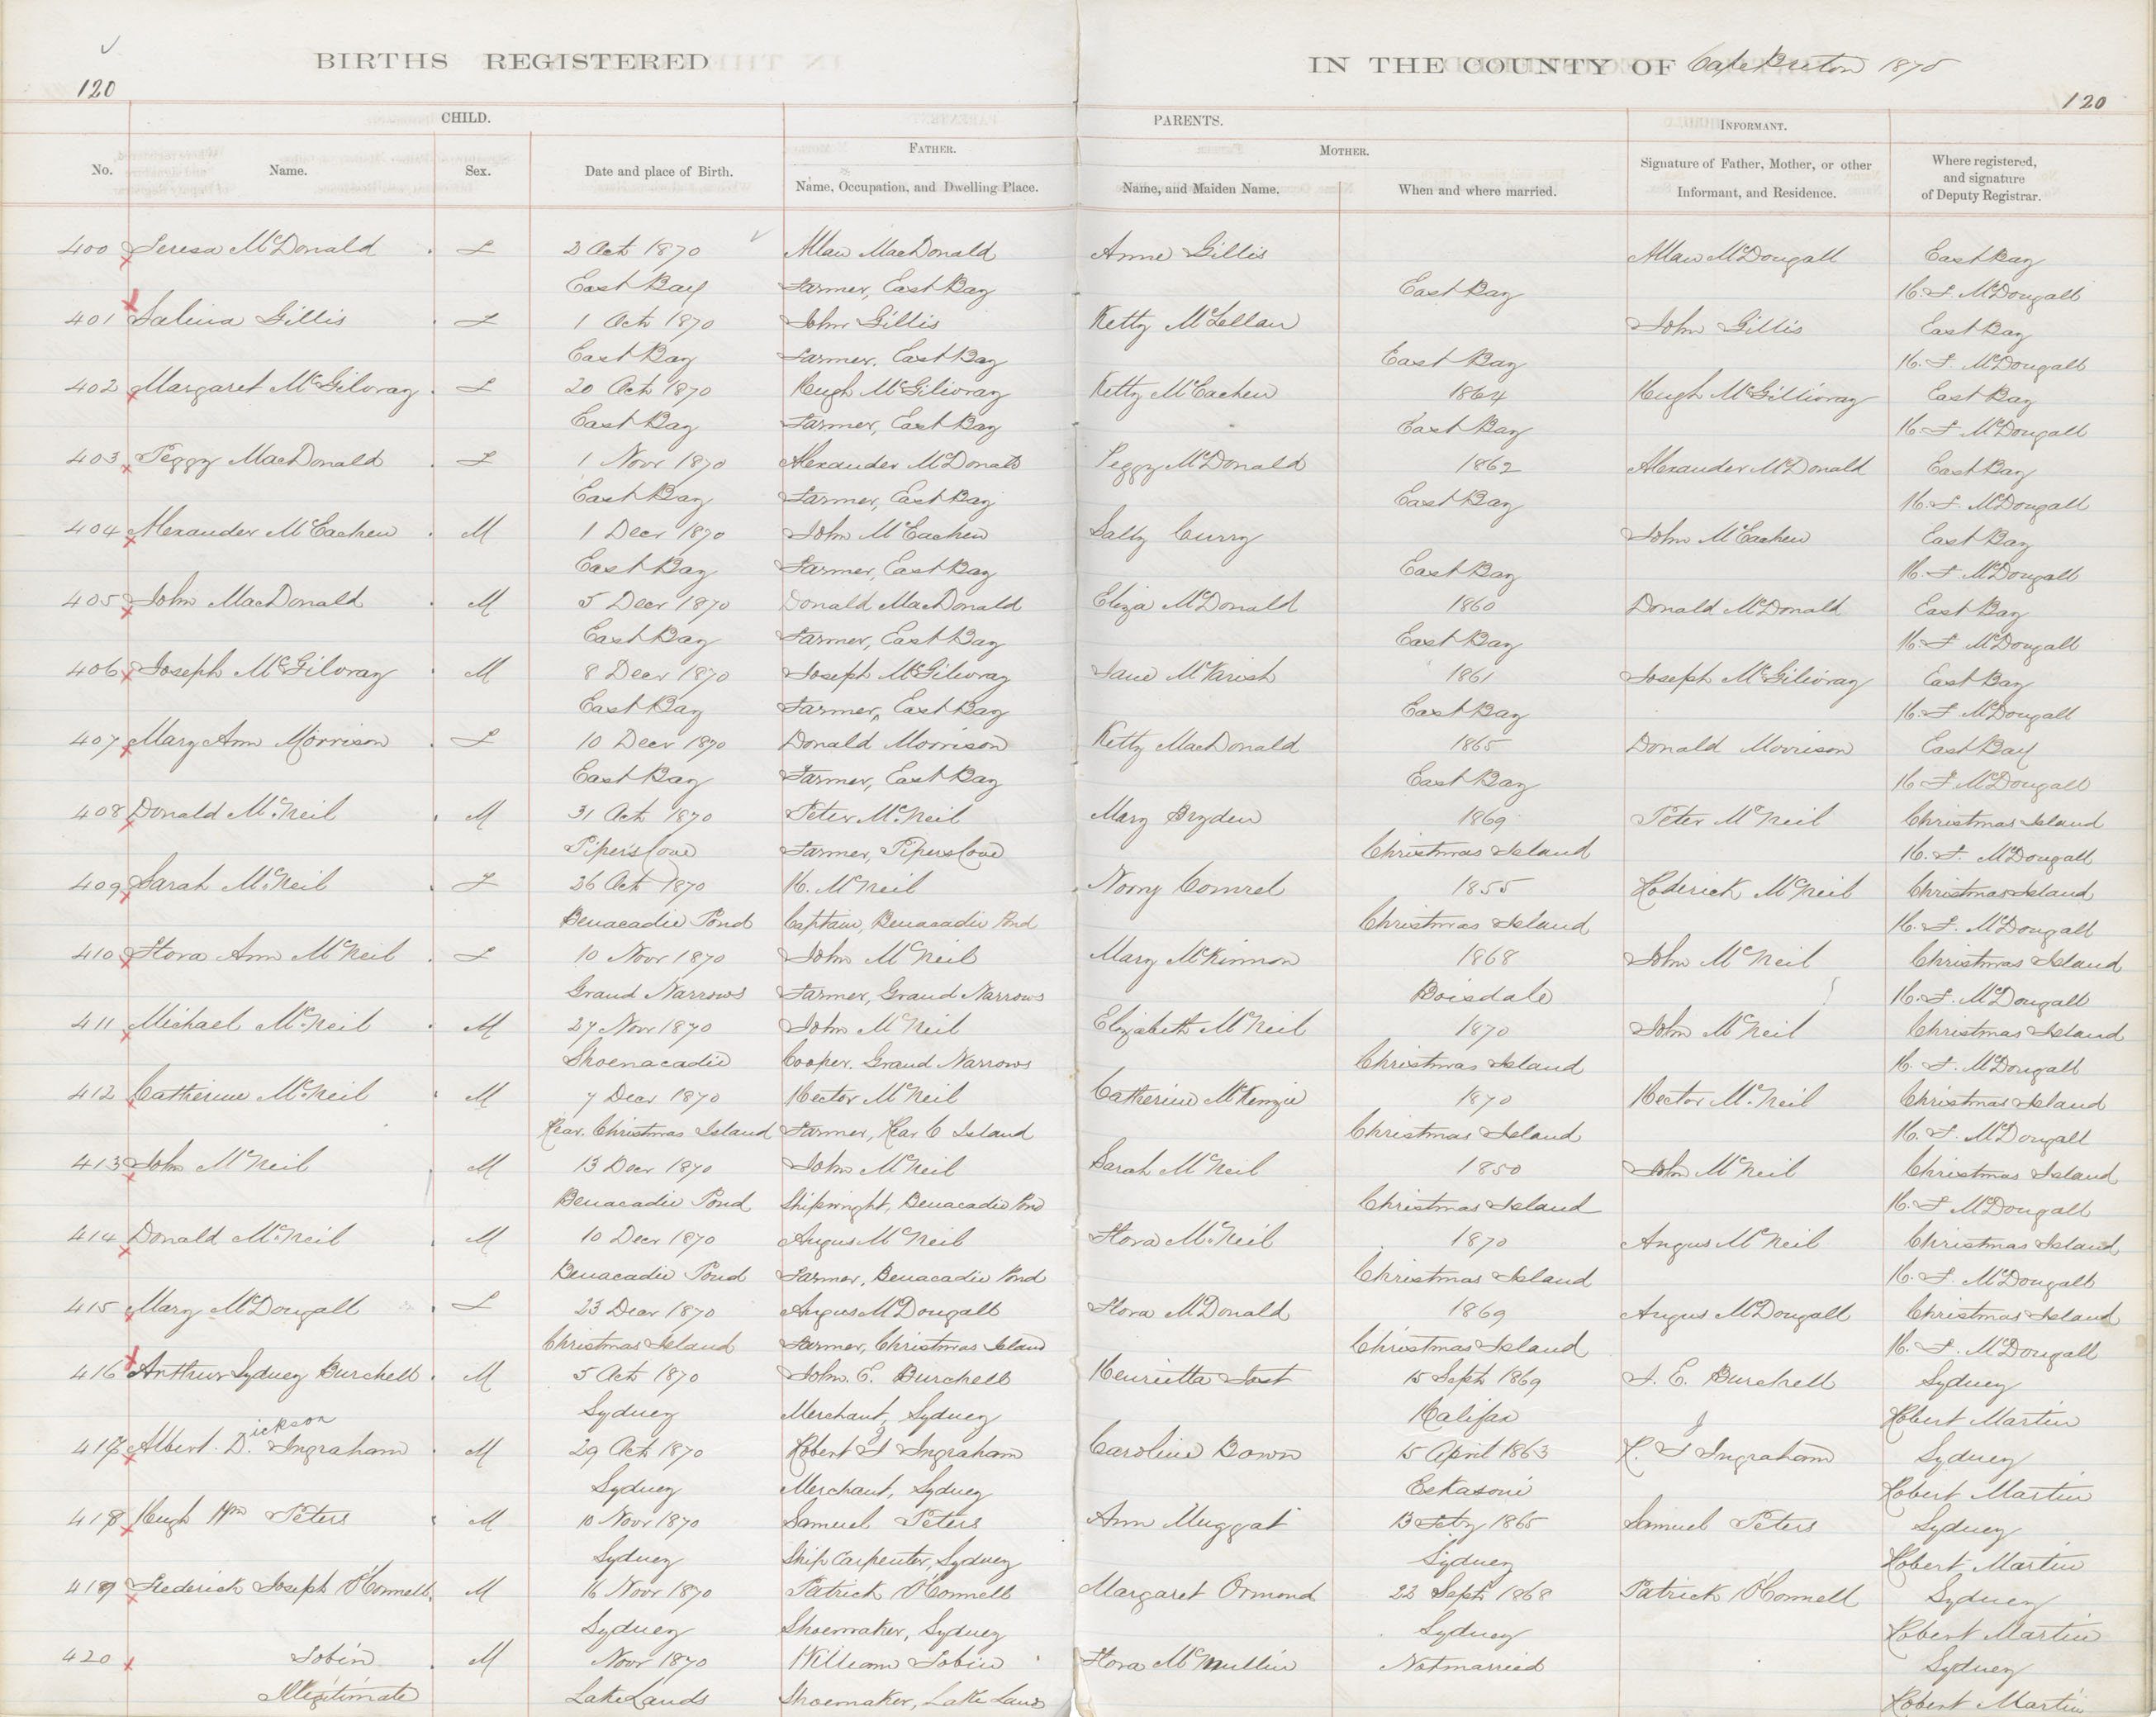 BIRTHS REGISTERED IN THE COUNTY OF Cape Breton 1870
120 120
CHILD. PARENTS. INFORMANT.
FATHER. MOTHER.
No. Name. Sex. Date and place of Birth. Name, Occupation, and Dwelling Place. Name, and Maiden Name. When and where married. Signature of Father, Mother, or other Informant, and Residence. Where registered, and signature of Deputy Registrar.
400 Teresa McDonald F 2 Oct 1870 Allan MacDonald Anne Gillis Allan McDougall East Bay
East Bay Farmer, East Bay East Bay H. F. McDougall
401 Salina Gillis F 1 Oct 1870 John Gillis Ketty McLellan John Gillis East Bay
East Bay Farmer. East Bay East Bay H. F. McDougall
402 Margaret McGilvray F 20 Oct 1870 Hugh McGilivray Ketty McEachen 1864 Hugh McGillivray East Bay
East Bay Farmer, East Bay East Bay H. F. McDougall
403 Peggy MacDonald F 1 Novr 1870 Alexander McDonald Peggy McDonald 1862 Alexander McDonald East Bay
East Bay Farmer, East Bay East Bay H. F. McDougall
404 Alexander McEachen M 1 Decr 1870 John McEachen Sally Curry John McEachen East Bay
East Bay Farmer, East Bay East Bay H. F. McDougall
405 John MacDonald M 5 Decr 1870 Donald MacDonald Eliza McDonald 1860 Donald McDonald East Bay
East Bay Farmer, East Bay East Bay H. F. McDougall
406 Joseph McGilvray M 8 Decr 1870 Joseph McGilivray Jane McVarish 1861 Joseph McGilivray East Bay
East Bay Farmer, East Bay East Bay H. F. McDougall
407 Mary Ann Morrison F 10 Decr 1870 Donald Morrison Ketty MacDonald 1865 Donald Morrison East Bay
East Bay Farmer, East Bay East Bay H. F. McDougall
408 Donald McNeil M 31 Oct 1870 Peter McNeil Mary Bryden 1869 Peter McNeil Christmas Island
Pipers Cove Farmer, Pipers Cove Christmas Island H. F. McDougall
409 Sarah McNeil F 26 Oct 1870 H. McNeil Nory 1855 Roderick McNeil Christmas Island
Benacadie Pond Captain, Benacadie Pond Christmas Island H. F. McDougall
410 Flora Ann McNeil F 10 Novr 1870 John McNeil Mary McKinnon 1868 John McNeil Christmas Island
Grand Narrows Farmer, Grand Narrows Boisdale H. F. McDougall
411 Michael McNeil M 27 Novr 1870 John McNeil Elizabeth McNeil 1870 John McNeil Christmas Island
Shoenacadie Cooper. Grand Narrows Christmas Island H. F. McDougall
412 Catherine McNeil M 7 Decr 1870 Hector McNeil Catherine McKenzie 1870 Hector McNeil Christmas Island
Rear. Christmas Island Farmer, Rear C Island Christmas Island H. F. McDougall
413 John McNeil M 13 Decr 1870 John McNeil Sarah McNeil 1850 John McNeil Christmas Island
Benacadie Pond Shipwright, Benacadie Pond Christmas Island H. F. McDougall
414 Donald McNeil M 10 Decr 1870 Angus McNeil Flora McNeil 1870 Angus McNeil Christmas Island
Benacadie Pond Farmer, Benacadie Pond Christmas Island H. F. McDougall
415 Mary McDougall F 23 Decr 1870 Angus McDougall Flora McDonald 1869 Angus McDougall Christmas Island
Christmas Island Farmer, Christmas Island Christmas Island H. F. McDougall
416 Arthur Sydney Burchell M 5 Oct 1870 John. E. Burchell Henrietta 15 Sept 1869 J. E. Burchell Sydney
Sydney Merchant, Sydney Halifax Robert Martin
417 Albert Dickson Ingraham M 29 Oct 1870 Robert J Ingraham Caroline Bown 15 April 1863 R. J Ingraham Sydney
Sydney Merchant, Sydney Eskasoni Robert Martin
418 Hugh Wm Peters M 10 Novr 1870 Samuel Peters Ann Muggat 13 Feby 1865 Samuel Peters Sydney
Sydney Ship Carpenter, Sydney Sydney Robert Martin
419 Frederick Joseph O'Connell M 16 Novr 1870 Patrick O'Connell Margaret Ormond 22 Sept 1868 Patrick O'Connell Sydney
Sydney Shoemaker, Sydney Sydney Robert Martin
420 Tobin M Novr 1870 William Tobin Flora McMullin Not married Sydney
Illegitimate Lake Lands Shoemaker, Lake Lands Robert Martin